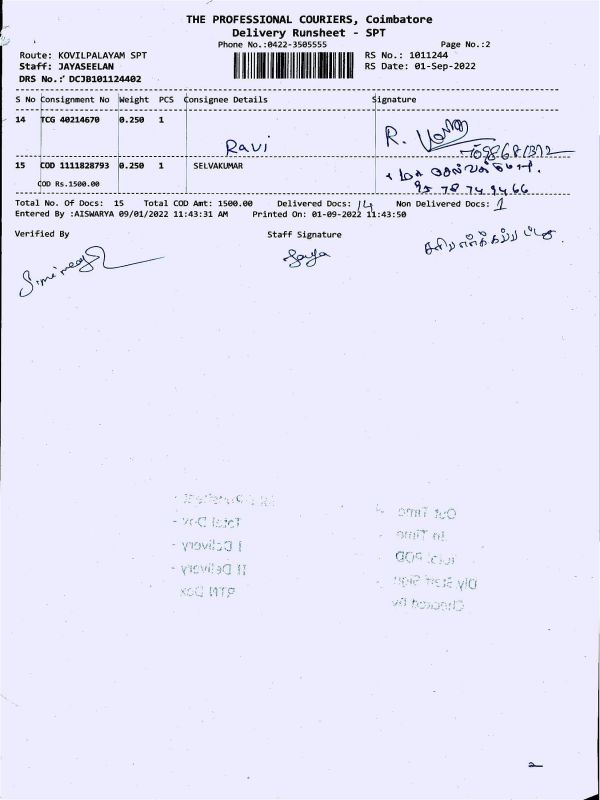 THE PROFESSIONAL COURIERS, Coimbatore
Delivery Runsheet - SPT
Phone No.:0422-3505555 Page No.:2
Route: KOVILPALAYAM SPT RS No.: 1011244
Staff: JAYASEELAN RS Date: 01-Sep-2022
DRS No.: DCJB101124402
S No Consignment No Weight PCS Consignee Details Signature
14 TCG 40214670 0.250 1
Ravi R.
15 COD 1111828793 0.250 1 SELVAKUMAR
COD Rs.1500.00 95 78 74 94 66
Total No. Of Docs: 15 Total COD Amt: 1500.00 Delivered Docs: 14 Non Delivered Docs: 1
Entered By :AISWARYA 09/01/2022 11:43:31 AM Printed On: 01-09-2022 11:43:50
Verified By Staff Signature
Out Time
Total Dox - In Time
I Delivery - Total POD
II Delivery - Dly Staff Sign
RTN Dox Checked by
2